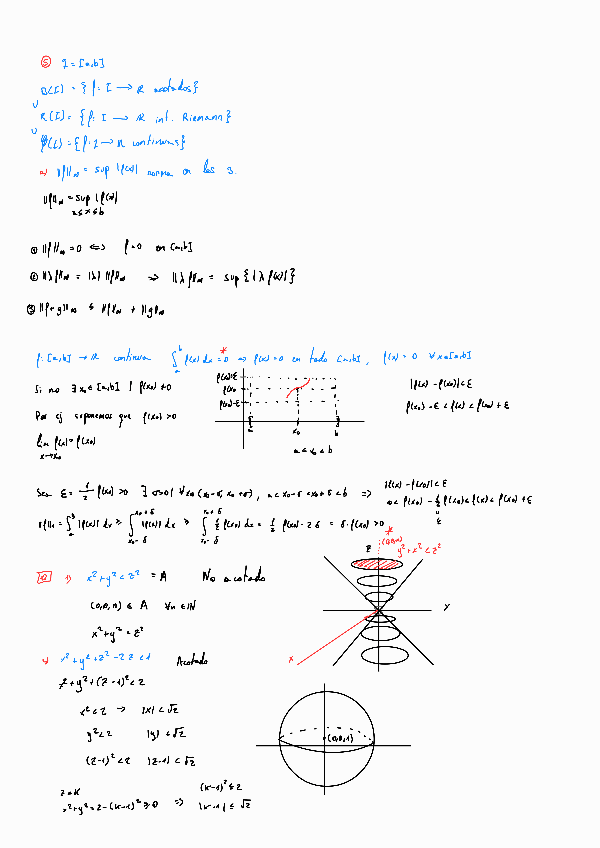 ⑤ I = [a,b]
B(I) = {f: I → ℝ acotadas}
∪
R(I) = {f: I → ℝ int. Riemann}
∪
C(I) = {f: I → ℝ continuas}
a) ||f||∞ = sup |f(x)| norma en los 3.
||f||∞ = sup |f(x)|
a≤x≤b
① ||f||∞ = 0 ⇔ f=0 en [a,b]
② ||λf||∞ = |λ| ||f||∞ ⇒ ||λf||∞ = sup {|λf(x)|}
③ ||f+g||∞ ≤ ||f||∞ + ||g||∞
f: [a,b] → ℝ continua ∫_a^b f(x) dx = 0 ⇒ f(x) = 0 en todo [a,b], f(x) = 0 ∀x∈[a,b]
*
Si no ∃ x₀ ∈ [a,b] / f(x₀) ≠ 0
Por ej suponemos que f(x₀) > 0
lím f(x) = f(x₀)
x→x₀
f(x₀)+ε
f(x₀)
f(x₀)-ε
a x₀ b
a < x₀ < b
|f(x) - f(x₀)| < ε
f(x₀) - ε < f(x) < f(x₀) + ε
Sea ε = 1/2 f(x₀) > 0 ∃ δ>0 / ∀x∈(x₀-δ, x₀+δ), a < x₀-δ < x₀+δ < b ⇒
|f(x) - f(x₀)| < ε
0 < f(x₀) - 1/2 f(x₀) < f(x) < f(x₀) + ε
ε
||f||₁ = ∫_a^b |f(x)| dx ≥ ∫_{x₀-δ}^{x₀+δ} |f(x)| dx ≥ ∫_{x₀-δ}^{x₀+δ} 1/2 f(x₀) dx = 1/2 f(x₀) · 2δ = δ · f(x₀) > 0
*
x² + y² < z² = A No acotado
(0,0,n) ∈ A ∀n ∈ ℕ
x² + y² = z²
z
(0,0,n)
y² + x² < z²
y
x
x² + y² + z² - 2z < 1 Acotado
x² + y² + (z-1)² < 2
x² < 2 → |x| < √2
y² < 2 |y| < √2
(z-1)² < 2 |z-1| < √2
(0,0,1)
z = K
x² + y² = 2 - (K-1)² ≥ 0 ⇒
(K-1)² ≤ 2
|K-1| ≤ √2